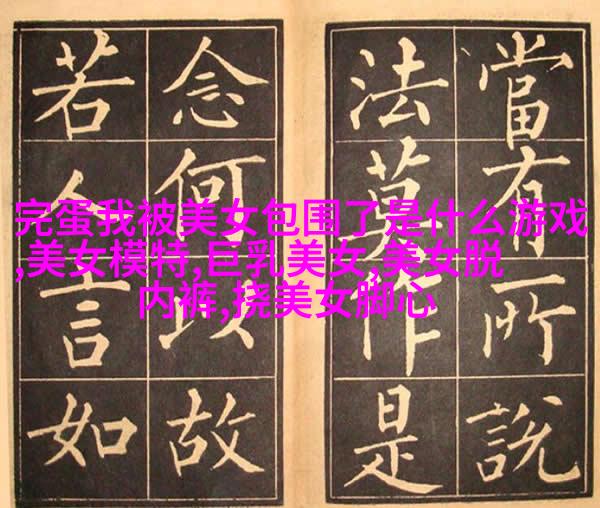 當有所說
法莫作是
念何以故
若人言如
完蛋我被美女包围了是什么游戏
,美女模特,巨乳美女,美女脱
内裤,挠美女脚心